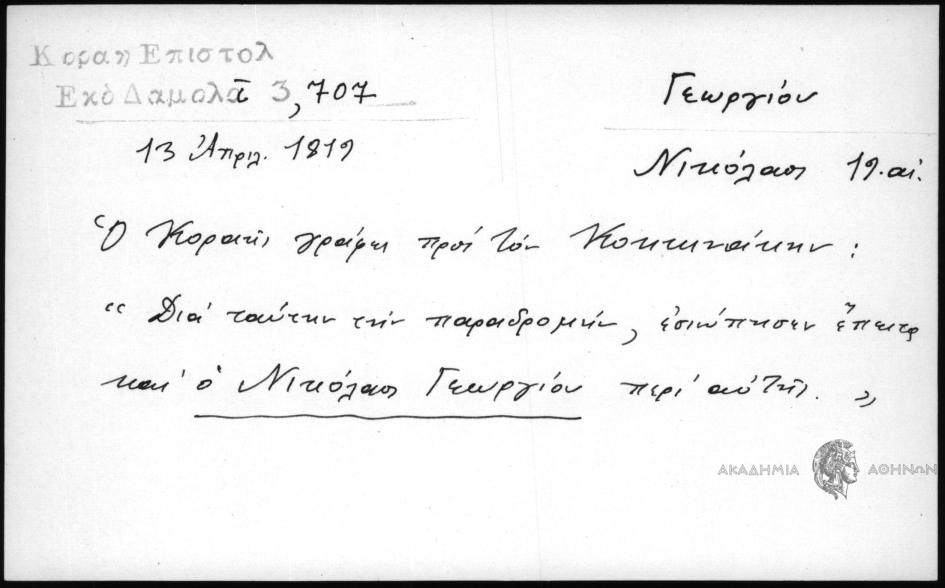 Κοραη Επιστολ
Εκδ Δαμαλᾶ 3, 707
13 Ἀπριλ. 1819
Γεωργίου
Νικόλαος 19. αἰ.
Ὁ Κοραῆς γράφει πρὸς τὸν Κοκκινάκην :
“ Διὰ ταύτην τὴν παραδρομήν, ἐσιώπησεν ἔπειτα
καὶ ὁ Νικόλαος Γεωργίου περὶ αὐτῆς. „
ΑΚΑΔΗΜΙΑ ΑΘΗΝΩΝ